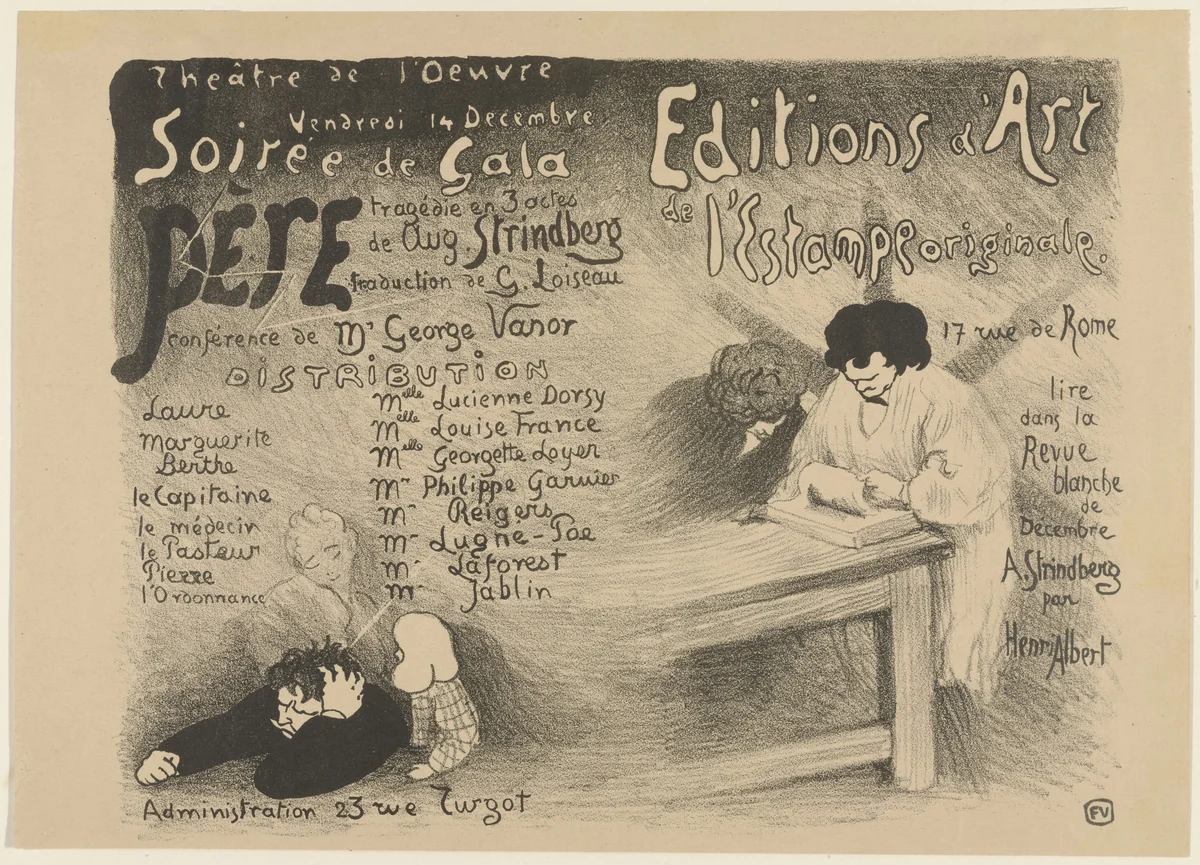 Theâtre de l'Oeuvre
Vendredi 14 Decembre
Soirée de Gala
PÈRE
tragédie en 3 actes
de Aug. Strindberg
traduction de G. Loiseau
conférence de Mr George Vanor
DISTRIBUTION
Laure Melle Lucienne Dorsy
Marguerite Melle Louise France
Berthe Melle Georgette Loyer
le Capitaine Mr Philippe Garnier
le médecin Mr Reigers
le Pasteur Mr Lugne-Poe
Pierre Mr Laforest
l'Ordonnance Mr Jablin
Administration 23 rue Turgot
Editions d'Art
de l'Estampe originale.
17 rue de Rome
lire
dans la
Revue
blanche
de
Decembre
A. Strindberg
par
Henri Albert
FV